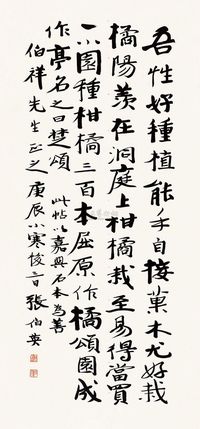 吾性好種植能手自接菓木尤好栽
橘陽羨在洞庭上柑橘栽至易得當買
一小園種柑橘三百本屈原作橘頌園成
作亭名之曰楚頌
此帖以嘉興石本為善
伯祥先生正之 庚辰小寒後二日張伯英